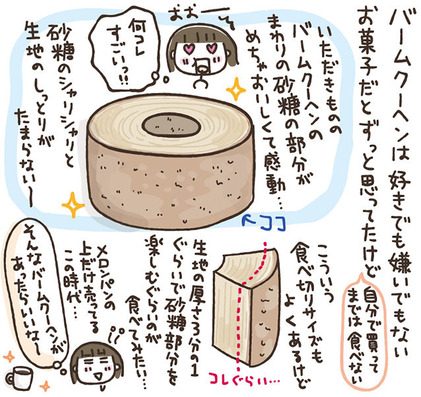 バームクーヘンは好きでも嫌いでもない
お菓子だとずっと思ってたけど
自分で買って
までは食べない
いただきものの
バームクーヘンの
まわりの砂糖の部分が
めちゃおいしくて感動…
おおー
何コレ
すごいっ!!
砂糖のシャリシャリと
生地のしっとりが
たまらない〜
ココ
こういう
食べ切りサイズも
よくあるけど
コレぐらい…
生地の厚さ3分の1
ぐらいで砂糖部分を
楽しむぐらいのが
食べてみたい…
メロンパンの
上だけ売ってる
この時代…
そんなバームクーヘンが
あったらいいな〜